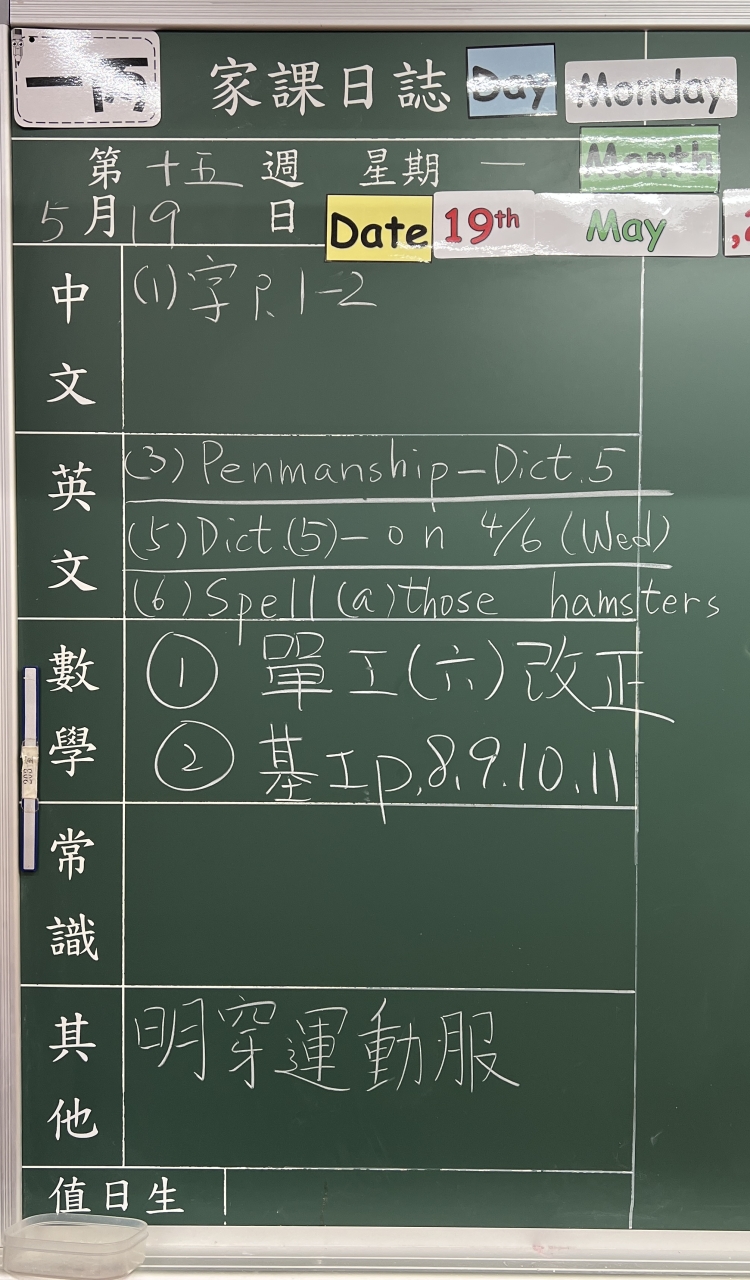 一丙 家課日誌 Day Monday
第 十五 週 星期 一 Month
5月19日 Date 19th May
中文
(1)字P.1-2
英文
(3) Penmanship-Dict.5
(5)Dict.(5)-on 4/6 (Wed)
(6)Spell(a)those hamsters
數學
① 單工(六)改正
② 基工p.8.9.10.11
常識
其他
明穿運動服
值日生